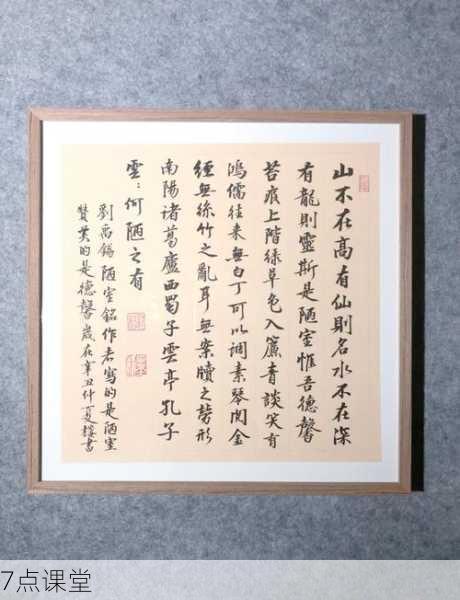 山不在高有仙則名水不在深
有龍則靈斯是陋室惟吾德馨
苔痕上階緑草色入簾青談笑有
鴻儒往来無白丁可以调素琴閲金
經無絲竹之亂耳無案牘之勞形
南陽诸葛廬西蜀子雲亭孔子
雲：何陋之有
劉禹錫陋室銘作者寫的是陋室
贊美的是德馨歲在辛丑仲夏書
7点课堂